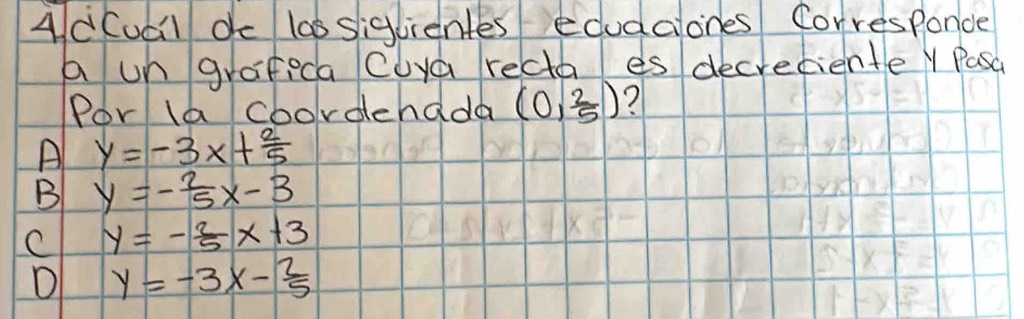 4. ¿Cuál de las siguientes ecuaciones Corresponde
a un gráfica Cuya recta es decreciente y Pasa
Por la coordenada (0, 2/5)?
A y = -3x + 2/5
B y = -2/5 x - 3
C y = -2/5 x + 3
D y = -3x - 2/5